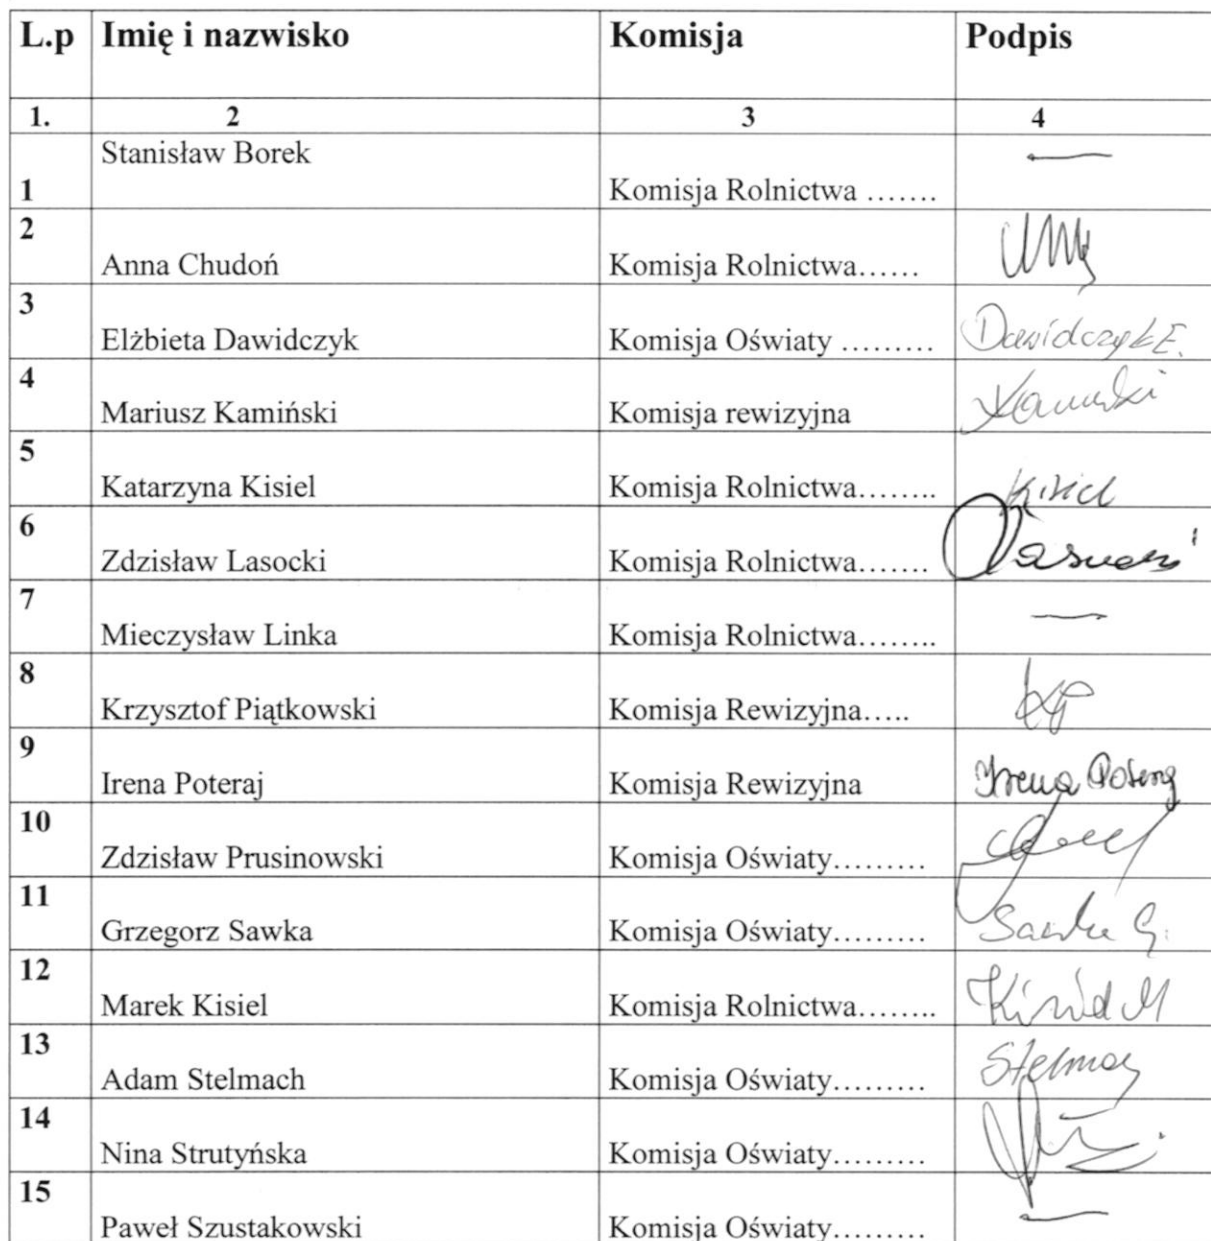 L.p Imię i nazwisko Komisja Podpis
1. 2 3 4
Stanisław Borek
1 Komisja Rolnictwa ……. —
2
Anna Chudoń Komisja Rolnictwa……
3
Elżbieta Dawidczyk Komisja Oświaty ……… Dawidczyk E.
4
Mariusz Kamiński Komisja rewizyjna
5
Katarzyna Kisiel Komisja Rolnictwa…….. Kisiel
6
Zdzisław Lasocki Komisja Rolnictwa…….
7
Mieczysław Linka Komisja Rolnictwa…….. —
8
Krzysztof Piątkowski Komisja Rewizyjna…..
9
Irena Poteraj Komisja Rewizyjna Irena Poteraj
10
Zdzisław Prusinowski Komisja Oświaty………
11
Grzegorz Sawka Komisja Oświaty……… Sawka G.
12
Marek Kisiel Komisja Rolnictwa…….. Kisiel M
13
Adam Stelmach Komisja Oświaty……… Stelmach
14
Nina Strutyńska Komisja Oświaty………
15
Paweł Szustakowski Komisja Oświaty……… —